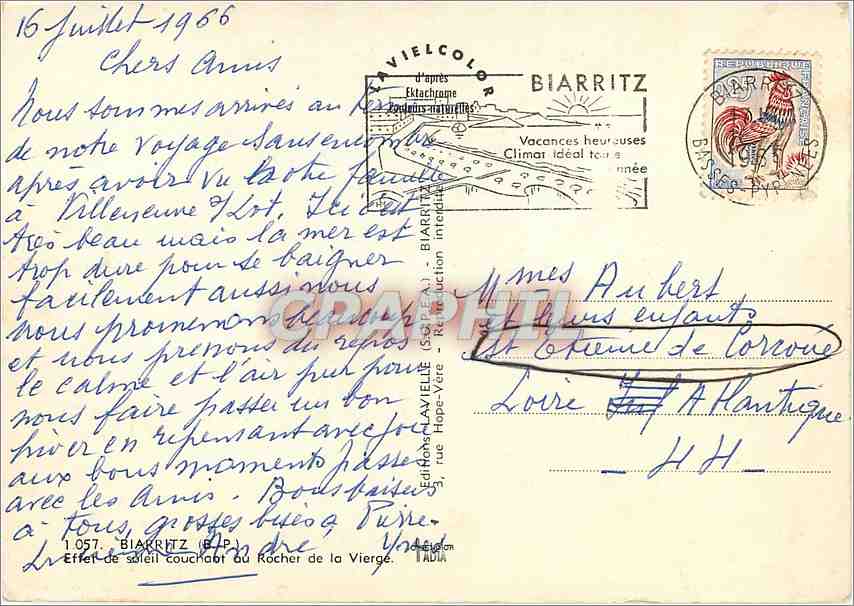 16 Juillet 1966
Chers Amis
Nous sommes arrivés au
de notre voyage sans encombre
après avoir vu la famille
à Villeneuve s/Lot. Ici c'est
très beau mais la mer est
trop dure pour se baigner
facilement aussi nous
nous promenons beaucoup
et nous prenons du repos
le calme et l'air pur pour
nous faire passer un bon
hiver en repensant avec joie
aux bons moments passés
avec les Amis. Bons baisers
à Tous, grosses bises à Pierre
André
LAVIELCOLOR
d'après
Ektachrome
Couleurs naturelles
BIARRITZ
Vacances heureuses
Climat idéal toute
année
REPUBLIQUE FRANÇAISE
BIARRITZ
BASSES-PYRENEES
Editions LAVIELLE (S.O.P.E.A.) - BIARRITZ
3, rue Hope-Vère - Reproduction interdite
CRAPHIL
Mmes Aubert
et leurs enfants
St Etienne de Corcoué
Loire Atlantique
- 44 -
1.057. BIARRITZ (B.-P.)
Effet de soleil couchant au Rocher de la Vierge.